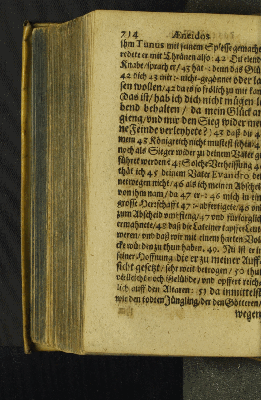 714 Æneidos
ihm Tunus mit seinem Spiesse gemacht
redete er mit Thränen also: 42 Du elend
Knabe/ sprach er/ 43 hat denn das Glü
42 dich 43 mir nicht gegönnet oder la
sen wollen/ 42 da es so frölich zu mir kam
(Das ist/ hab ich dich nicht mügen le
bend behalten/ da mein Glück an
gieng/ und mir den Sieg wider mei
ne Feinde verleyhete?) 43 daß du 4
mein 43 Königreich nicht mustest sehen/
noch als Sieger wider zu deinem Vater g
führet werden? 41 Solche Verheissung 4
thät ich 45 deinem Vater Evandro de
netwegen nicht/ 46 als ich mein Abschei
von ihm nam/ da 47 er 46 mich in ein
grosse Herrschafft 47 abfertigete/ 46 und
zum Abscheid umfieng/ 47 und fürsorglich
ermahnete/ 48 daß die Lateiner tapfer Leut
weren/ und daß wir mit einem harten Vol
cke würden zu thun haben. 49. Nu ist er in
seiner Hoffnung die er zu meiner Auff
sicht gesetzt/ sehr weit betrogen/ 50 thut
vielleicht auch Gelübde/ und opfert reich
lich auff den Altaren: 51 da inmittelst
wir den todten Jüngling/ der den Göttern/
wegen